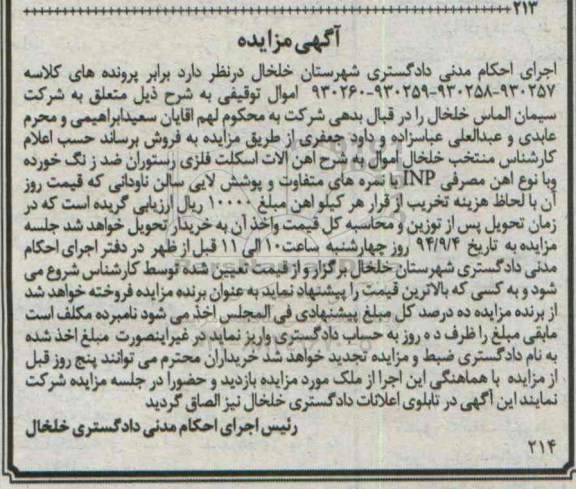 ۲۱۳
آگهی مزایده
اجرای احکام مدنی دادگستری شهرستان خلخال درنظر دارد برابر پرونده های کلاسه
۹۳۰۲۵۷-۹۳۰۲۵۸-۹۳۰۲۵۹-۹۳۰۲۶۰ اموال توقیفی به شرح ذیل متعلق به شرکت
سیمان الماس خلخال را در قبال بدهی شرکت به محکوم لهم اقایان سعیدابراهیمی و محرم
عابدی و عبدالعلی عباسزاده و داود جعفری از طریق مزایده به فروش برساند حسب اعلام
کارشناس منتخب خلخال اموال به شرح اهن الات اسکلت فلزی رستوران ضد ز نگ خورده
وبا نوع اهن مصرفی INP با نمره های متفاوت و پوشش لایی سالن ناودانی که قیمت روز
آن با لحاظ هزینه تخریب از قرار هر کیلو اهن مبلغ ۱۰۰۰۰ ریال ارزیابی گریده است که در
زمان تحویل پس از توزین و محاسبه کل قیمت واخذ آن به خریدار تحویل خواهد شد جلسه
مزایده به تاریخ ۹۴/۹/۴ روز چهارشنبه ساعت ۱۰ الی ۱۱ قبل از ظهر در دفتر اجرای احکام
مدنی دادگستری شهرستان خلخال برگزار و از قیمت تعیین شده توسط کارشناس شروع می
شود و به کسی که بالاترین قیمت را پیشنهاد نماید به عنوان برنده مزایده فروخته خواهد شد
از برنده مزایده ده درصد کل مبلغ پیشنهادی فی المجلس اخذ می شود نامبرده مکلف است
مابقی مبلغ را ظرف د ه روز به حساب دادگستری واریز نماید در غیراینصورت مبلغ اخذ شده
به نام دادگستری ضبط و مزایده تجدید خواهد شد خریداران محترم می توانند پنج روز قبل
از مزایده با هماهنگی این اجرا از ملک مورد مزایده بازدید و حضورا در جلسه مزایده شرکت
نمایند این آگهی در تابلوی اعلانات دادگستری خلخال نیز الصاق گردید
رئیس اجرای احکام مدنی دادگستری خلخال
۲۱۴